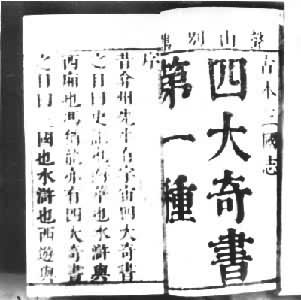 聲山別
古本三國志
四大奇書
第一種
序
昔弇州先生有宇宙四大奇書
之目曰史記也南華也水滸與
西廂也馮猶龍亦有四大奇書
之目曰三國也水滸也西遊與